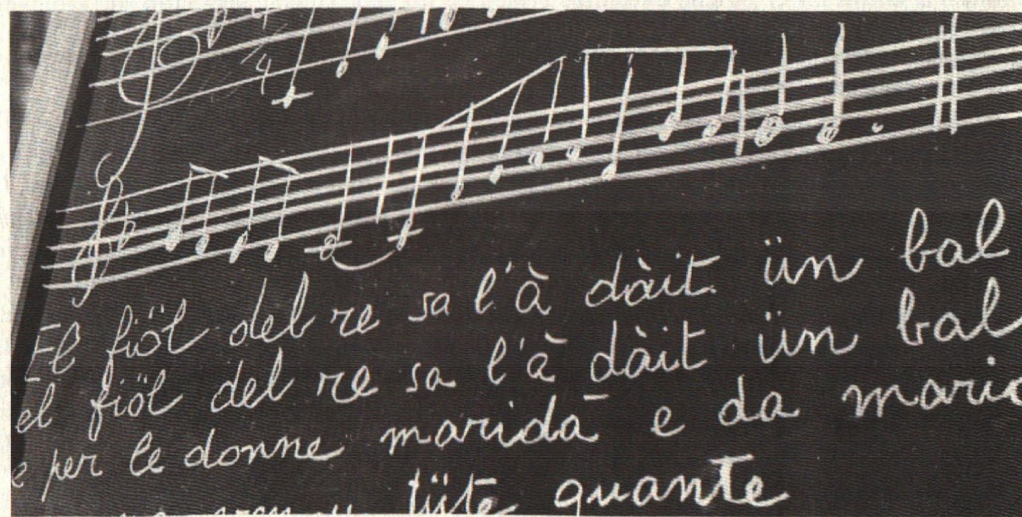 4
El fiöl del re sa l'à dàit ün bal
el fiöl del re sa l'à dàit ün bal
e per le donne maridà e da marid
tüte quante